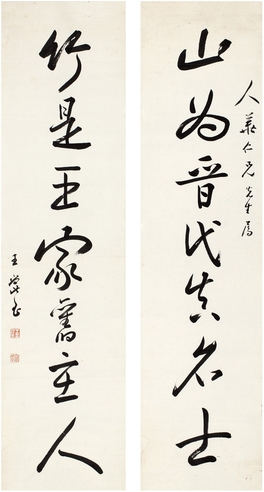 山為晉代真名士
仁兄先生屬
竹是王家舊主人
王